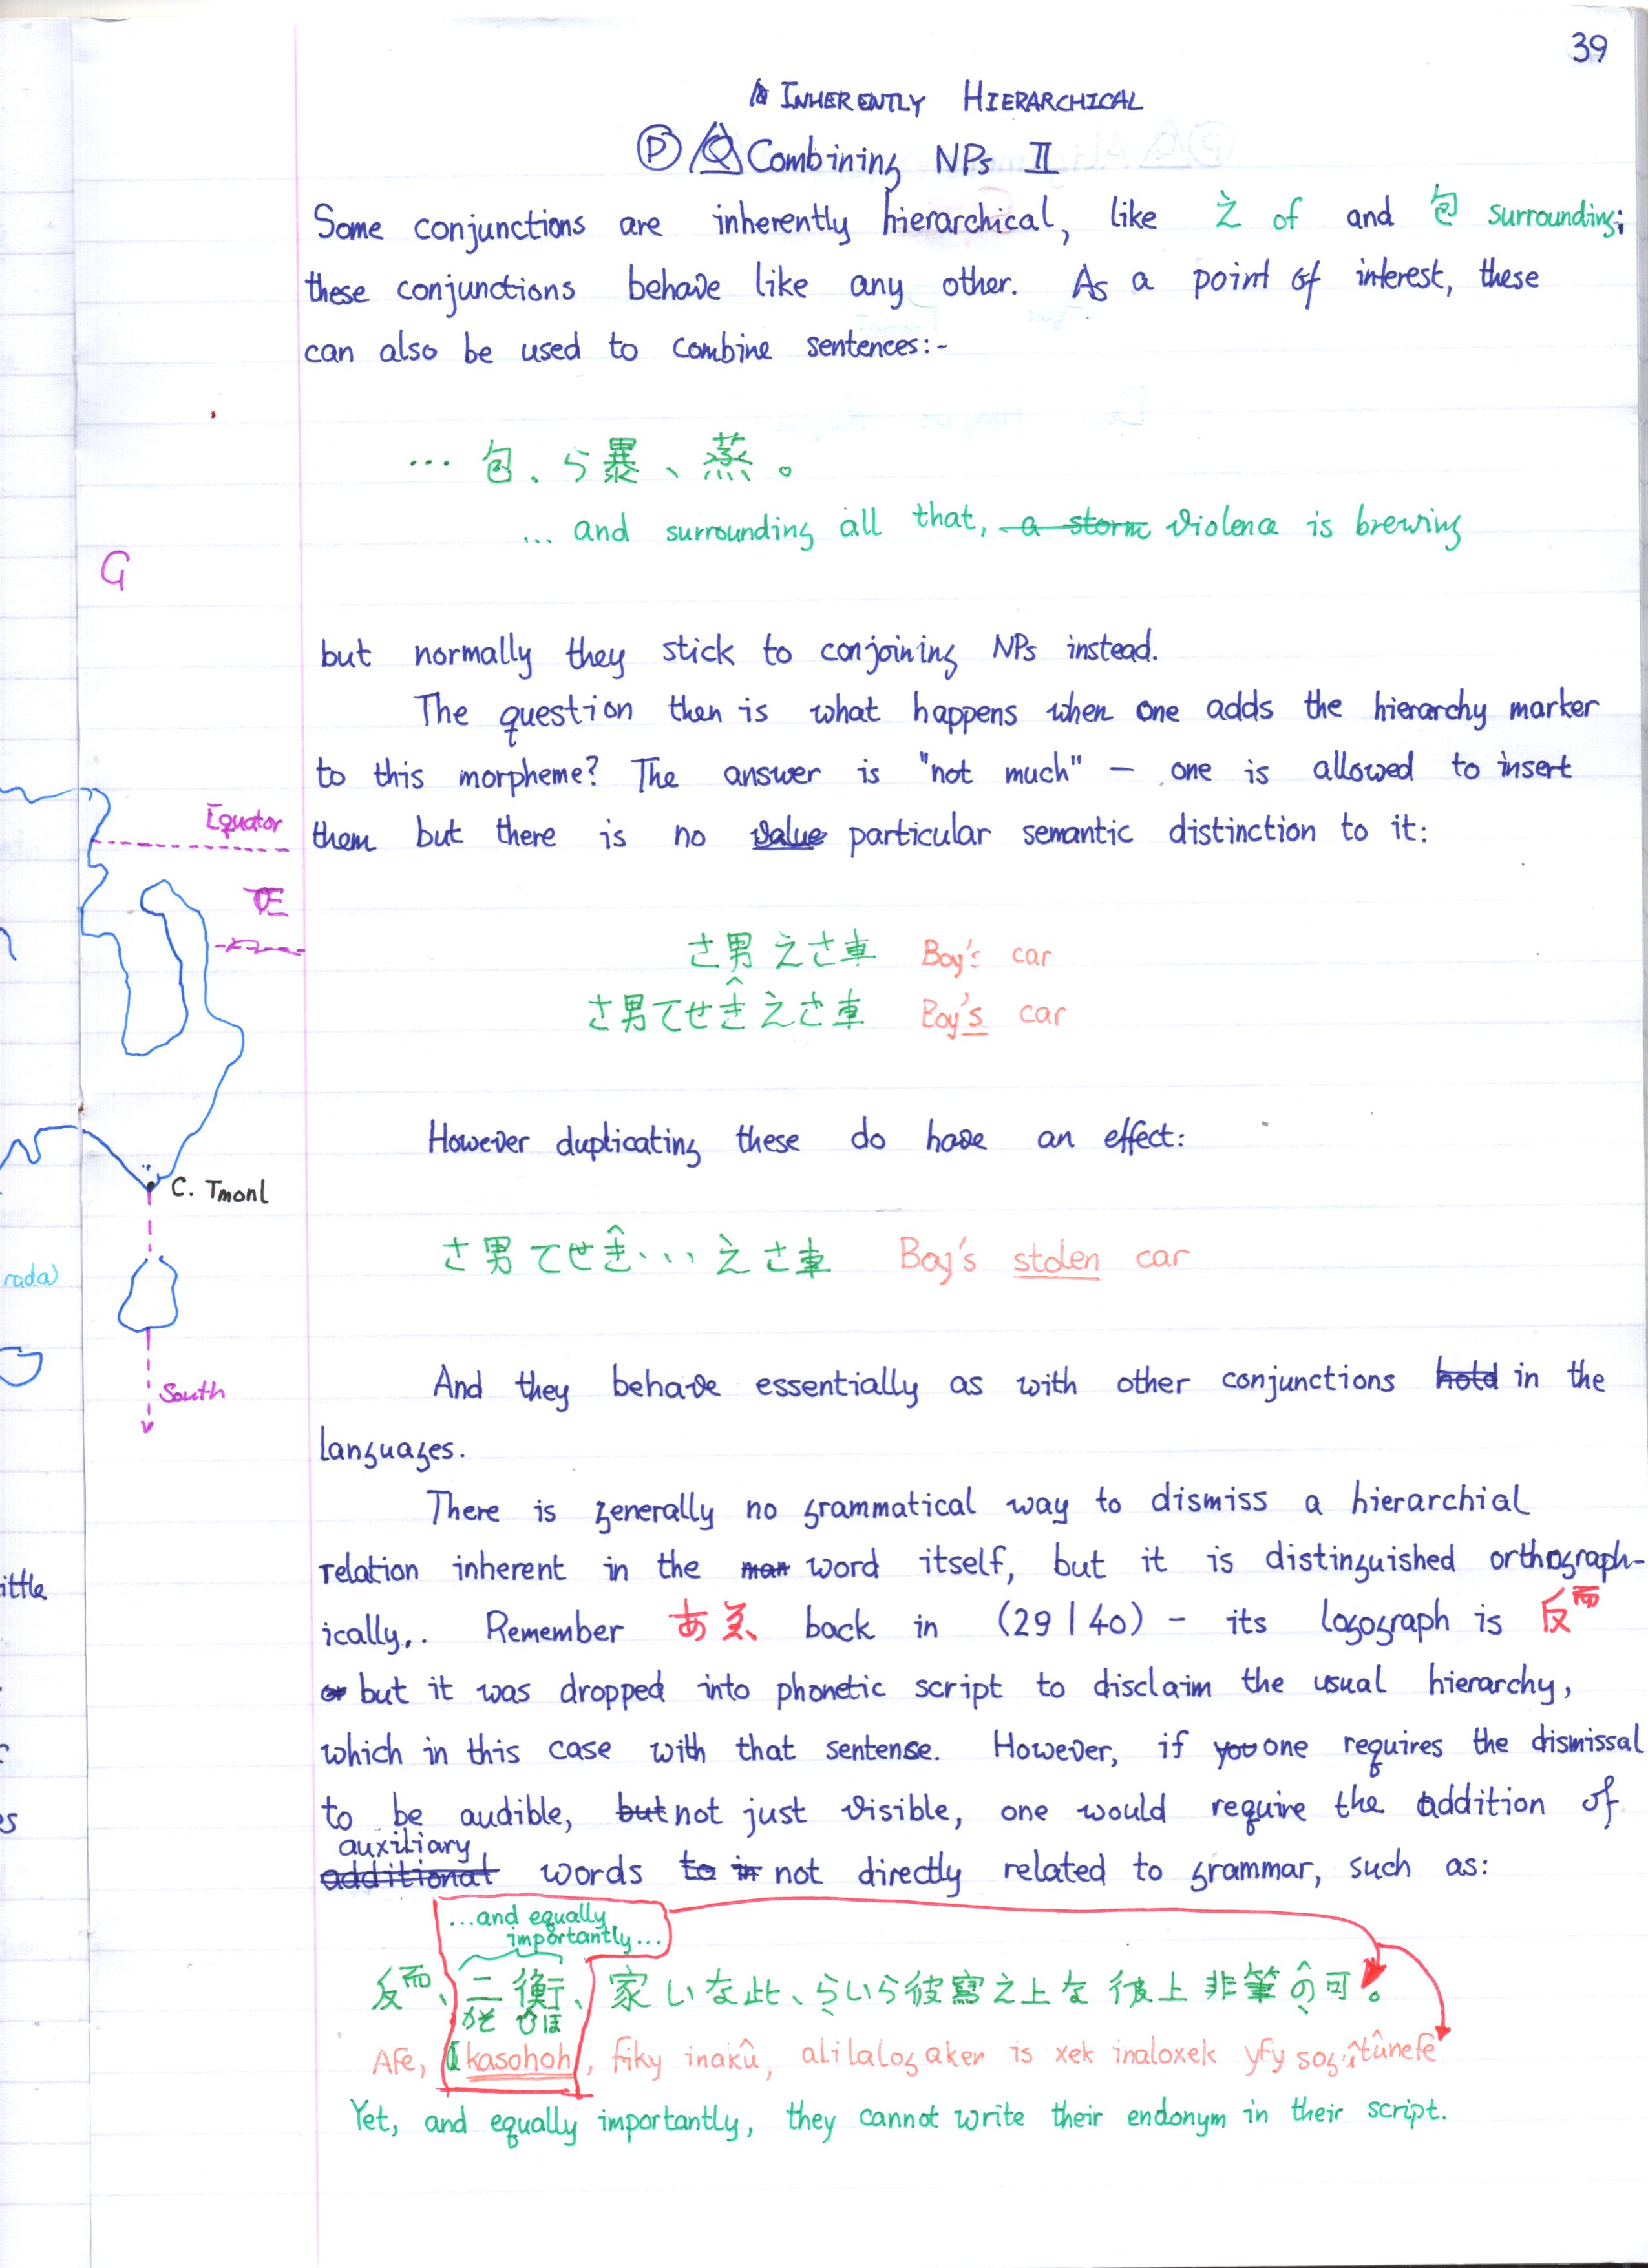 39
INHERENTLY HIERARCHICAL
Ⓟ Q Combining NPs II
Some conjunctions are inherently hierarchical, like 之 of and 包 surrounding;
these conjunctions behave like any other. As a point of interest, these
can also be used to combine sentences:-
... 包、ら暴、蒸。
... and surrounding all that, a storm violence is brewing
G
but normally they stick to conjoining NPs instead.
The question then is what happens when one adds the hierarchy marker
to this morpheme? The answer is "not much" – one is allowed to insert
Equator
them but there is no value particular semantic distinction to it:
さ男之さ車 Boy's car
さ男てせき之さ車 Boy's car
However duplicating these do have an effect:
C. Tmonl
さ男てせき...之さ車 Boy's stolen car
rada)
And they behave essentially as with other conjunctions hold in the
South
languages.
There is generally no grammatical way to dismiss a hierarchial
relation inherent in the man word itself, but it is distinguished orthograph-
ittle
ically,. Remember あ back in (29|40) – its logograph is 反而
or but it was dropped into phonetic script to disclaim the usual hierarchy,
which in this case with that sentense. However, if you one requires the dismissal
to be audible, but not just visible, one would require the addition of
es
auxiliary
additional words to in not directly related to grammar, such as:
...and equally
importantly...
反而、二衡、家いな此、らいら彼寫之上な彼上非筆の可。
かそ ひほ
Afe, kasohoh, fiky inakû, alilalogaken is xek inaloxek yfy sogîtûnefe
Yet, and equally importantly, they cannot write their endonym in their script.